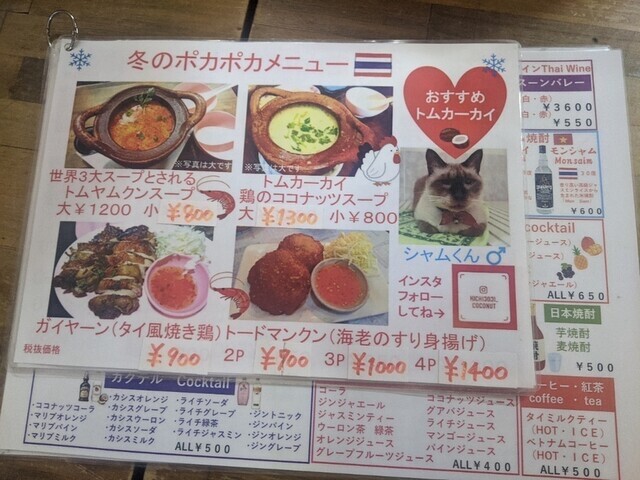 冬のポカポカメニュー
※写真は大です
※写真は大です
世界3大スープとされる
トムヤムクンスープ
大￥1200 小￥800
トムカーカイ
鶏のココナッツスープ
大￥1300 小￥800
おすすめ
トムカーカイ
シャムくん♂
インスタ
フォロー
してね→
COCONUT
ガイヤーン(タイ風焼き鶏)
トードマンクン(海老のすり身揚げ)
税抜価格
￥900
2P ￥700 3P ￥1000 4P ￥1400
イン Thai Wine
スーンバレー
白・赤)
￥3600
白・赤)
￥550
焼酎
モンシャム
Monsiam
￥600
cocktail
ALL￥650
日本焼酎
芋焼酎
麦焼酎
￥500
カクテル Cocktail
・ココナッツコーラ
・マリブオレンジ
・マリブパイン
・マリブミルク
・カシスオレンジ
・カシスグレープ
・カシスウーロン
・カシスソーダ
・カシスミルク
・ライチソーダ
・ライチグレープ
・ライチ緑茶
・ライチジャスミン
・ジントニック
・ジンパイン
・ジンオレンジ
・ジングレープ
ALL￥500
コーラ
ジンジャエール
ジャスミンティー
ウーロン茶 緑茶
オレンジジュース
グレープフルーツジュース
ココナッツジュース
グアバジュース
ライチジュース
マンゴージュース
パインジュース
ALL￥400
コーヒー・紅茶
coffee ・ tea
タイミルクティー
(HOT・ICE)
ベトナムコーヒー
(HOT・ICE)
ALL￥500